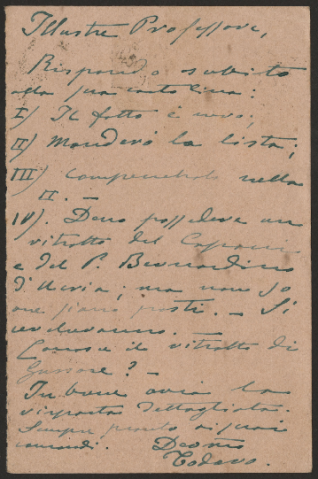 Illustre Professore,
Rispondo subito
alla sua cartolina:
I) Il fatto è vero;
II) Manderò la lista;
III) Compenetrata nella
II. —
IV). Devo possedere un
ritratto del
e del P. Bernardino
d'Ucria; ma non so
ove siano posti. — Si
cercheranno. —
Conosce il ritratto di
Gussone? —
In breve avrà la
risposta dettagliata.
Sempre pronto ai suoi
comandi. Devmo
Todaro.